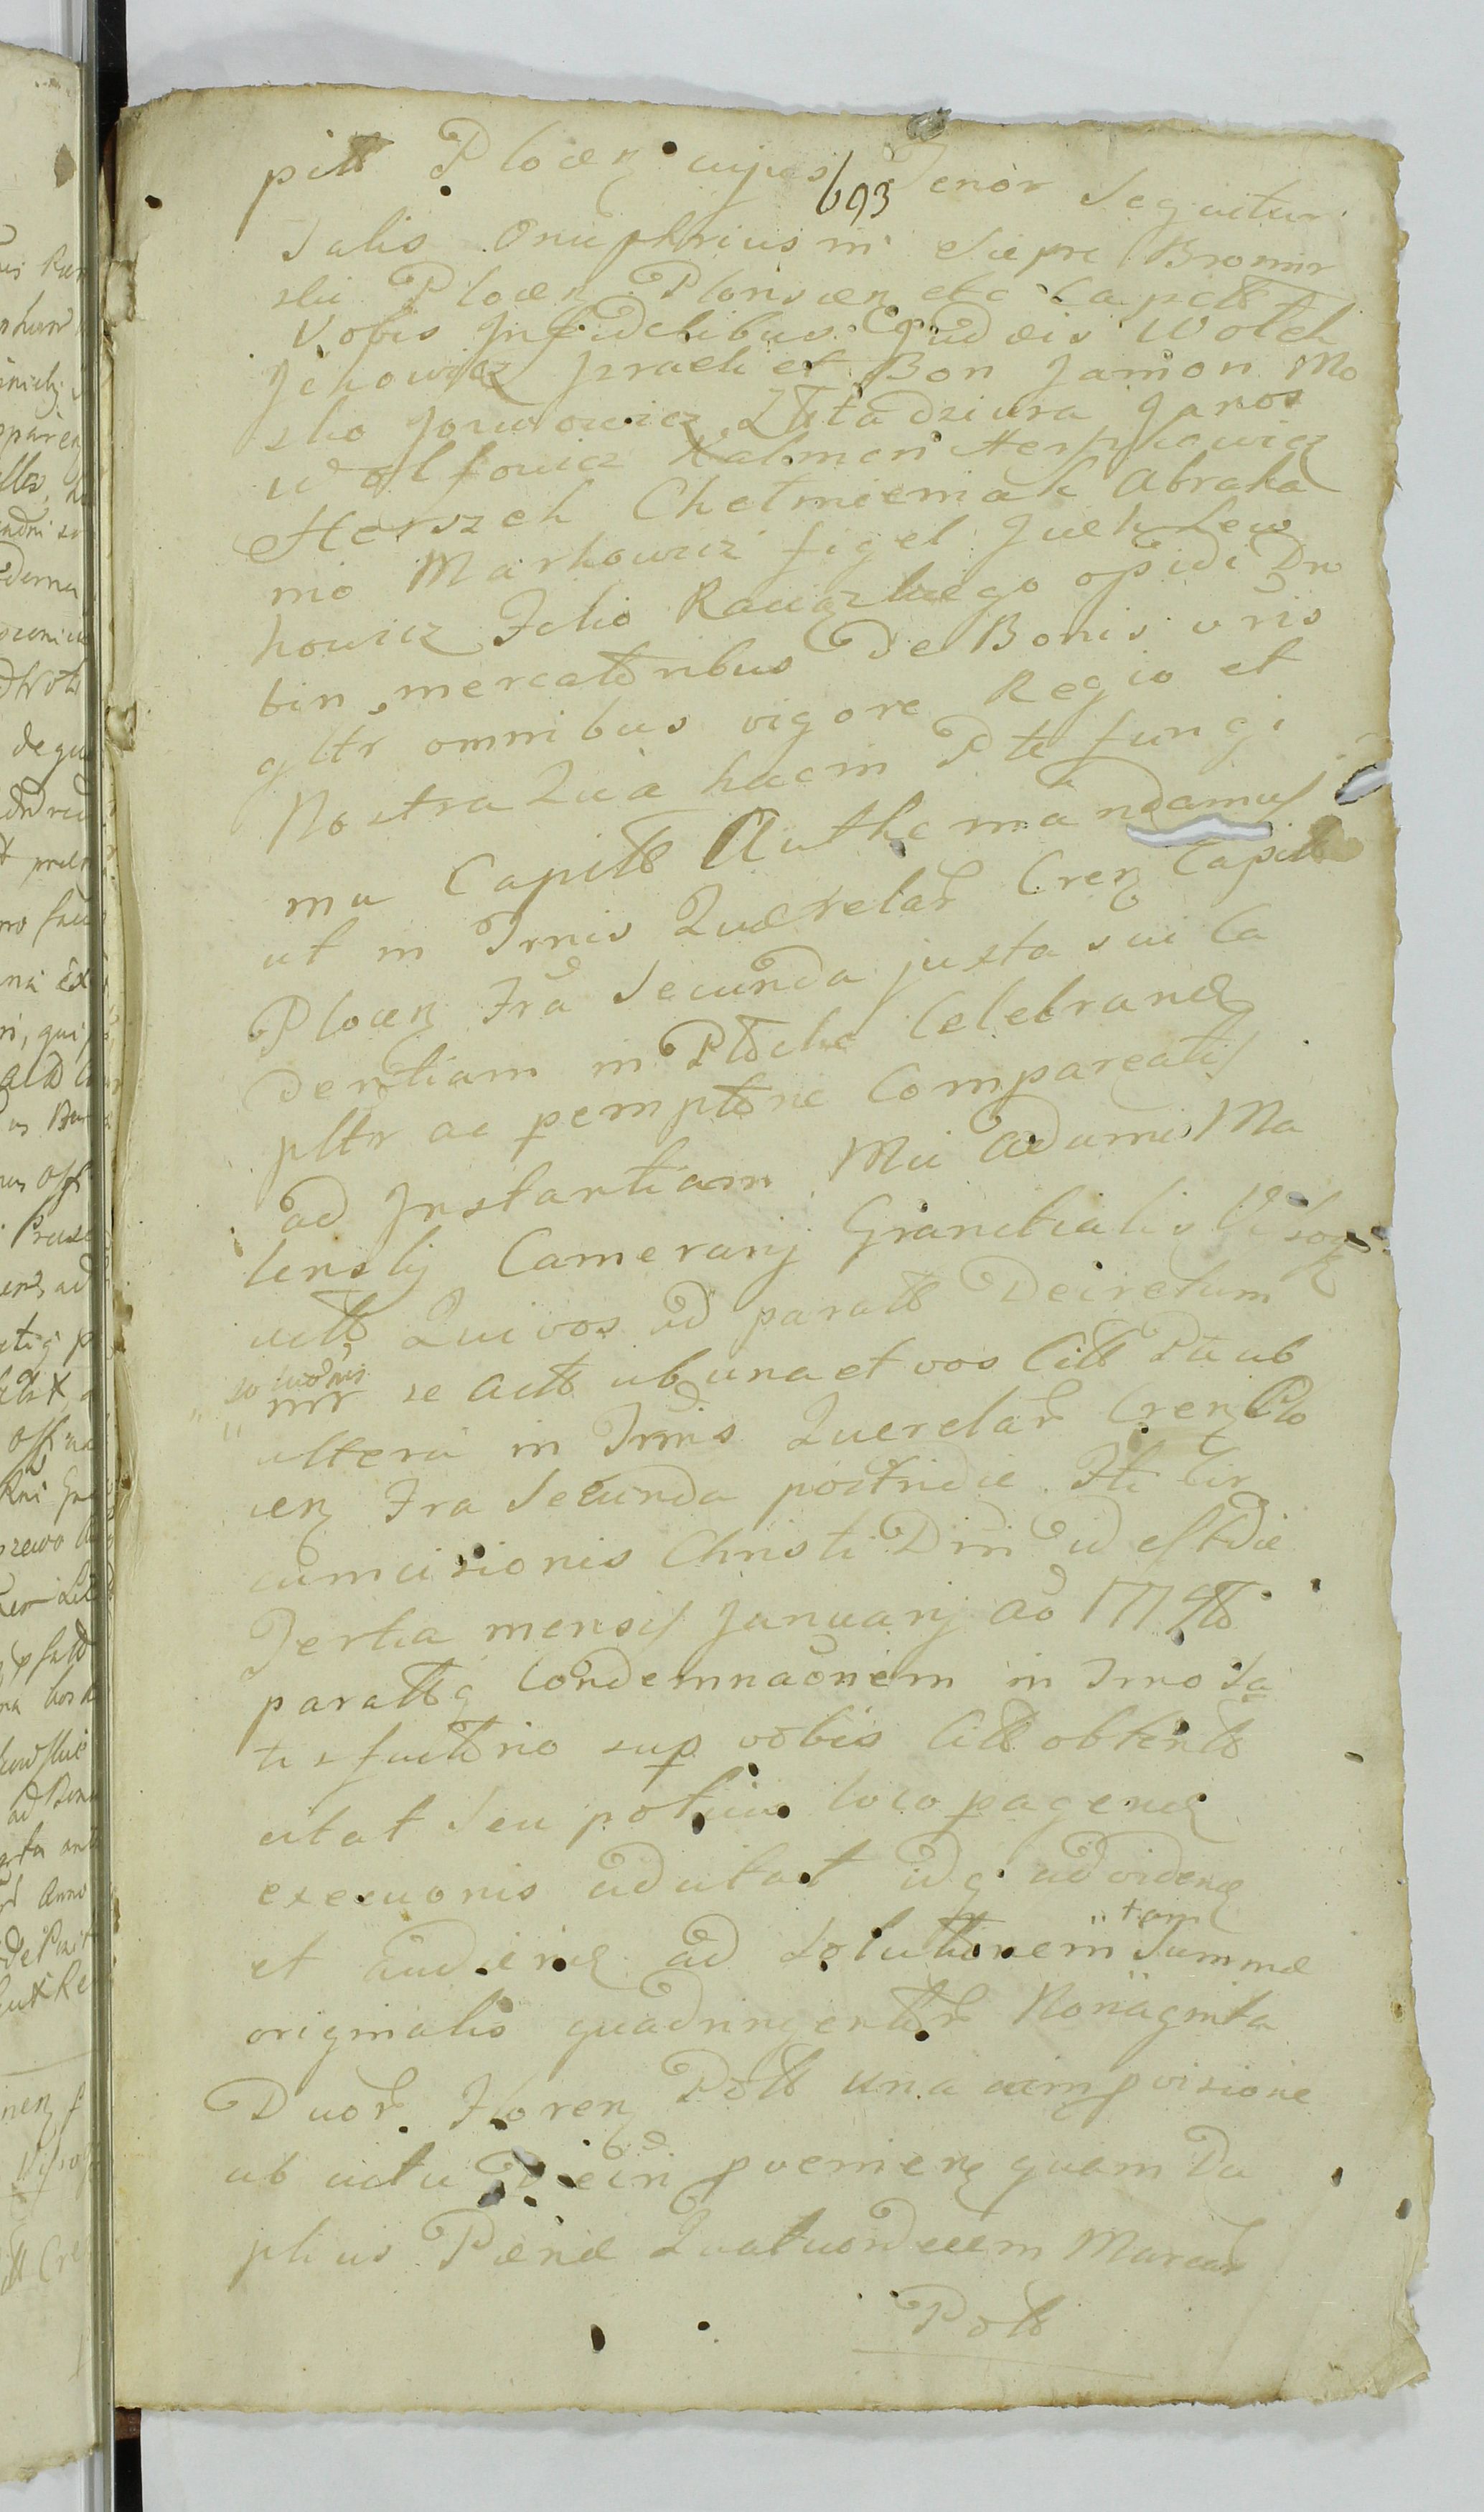 pitt Plocen cujus Tenor Sequitur
693
Talis Onuphrius in Siepre Bromir
ski Plocen Plonscen etc Capitt
Vobis Infidelibus Judæis Wolek
Ickowicz Jzraeli et Bon Jamon Mo
sko Złota dziura Janos
Wolfowicz Kalmen Herszkowicz
Herszek Chełmieniak Abraha
mo Markowicz figel Juek Lew
kowicz Icko opidi Dro
bin mercatoribus De Bonis vris
gltr omnibus vigore Regia et
Nostra Qua hacin Pte fungi
mu Capitt Authe mandamus
ut in Trnis Querelar Cren Capitt
Plocen Fra Secunda juxta sui Ca
dentiam in Płocko Celebrand
pltr ac pemptorie Compareatis
ad Instantiam Mci Adami Ma
lenskj Camerarij Granitialis Visog
actt, Qui vos ad paratt Decretum
nrr se actt ab una et vos Citt Pta ab
altera in Trnis Querelar Cren Plo
cen Fra Secunda postridie Fti Cir
cumcisionis Christi Dni id est die
Tertia mensis Januarij Ao 1774to
parattq Condemnaonem in Trno Sa
tisfactorio sup vobis Citt obtentt
citat Seu potius loco pagend
execuonis adcitat idq ad vidend
et audiend ad Solutionem tam Summæ
originalis quadringentar Nonaginta
Duor Floren Poll una cum provisione
ab actu Decri provenien quam Du
plicis Pænæ Quatuordecem Marcar
Poll